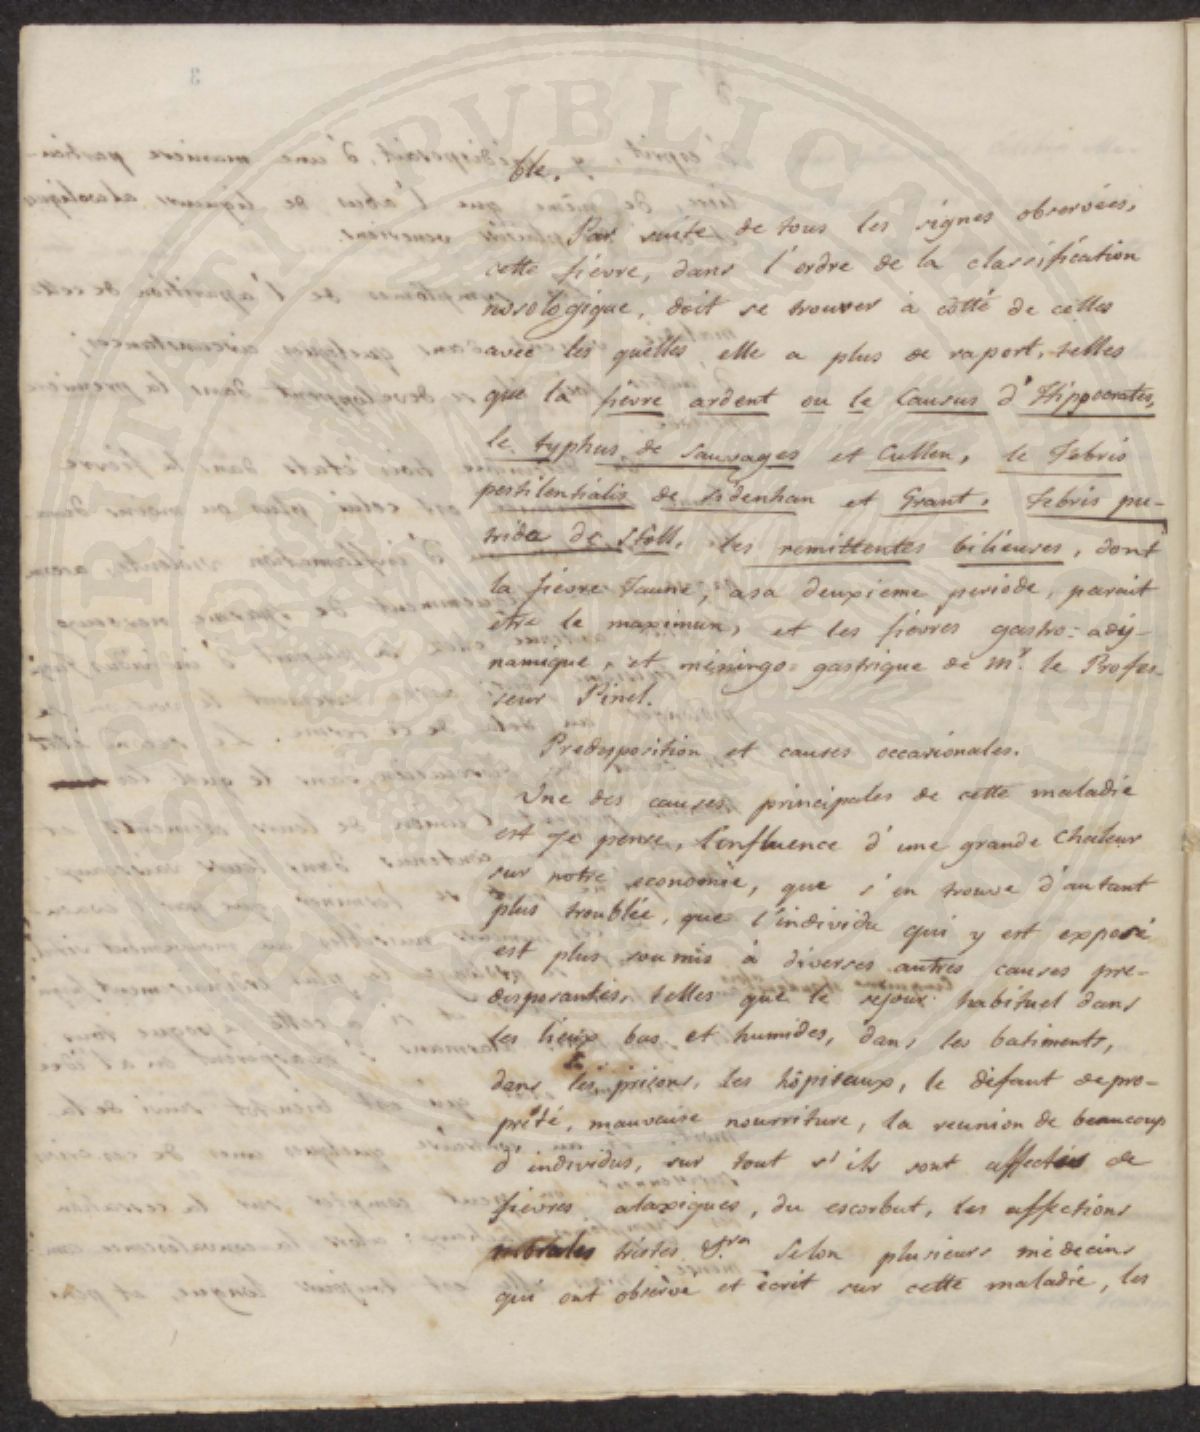 ble.
Par suite de tous les signes observées,
cette fievre, dans l'ordre de la classification
nosologique, doit se trouver à cotté de celles
avec les quelles elle a plus de raport, telles
que la fievre ardent ou le Causus d'Hippocrates,
le typhus de Sauvages et Cullen, le Febris
pestilentialis de Sidenhan et Grant, Febris pu-
trida de Stoll, les remittentes biliéuses, dont
la fievre Jaune, asa deuxieme periode, parait
etre le maximun, et les fievres gastro-ady-
namique, et méningo-gastrique de Mr. le Profes-
seur Pinel.
Predisposition et causes occasionales.
Une des causes principales de cette maladie
est je pense, l'influence d'une grande chaleur
sur notre economie, que s'en trouve d'autant
plus troublée, que l'individu qui y est exposé
est plus soumis à diverses autres causes pre-
disposantes, telles que le sejour habituel dans
les lieux bas et humides, dans les batiments,
dans les prisons, les hôpiteaux, le défaut depro-
preté, mauvaise nourriture, la reunion de beaucoup
d'individus, sur tout s'ils sont affectés de
fievres ataxiques, du escorbut, les affections
morales tristes &.ra Selon plusieurs médecins
qui ont observé et écrit sur cette maladie, les